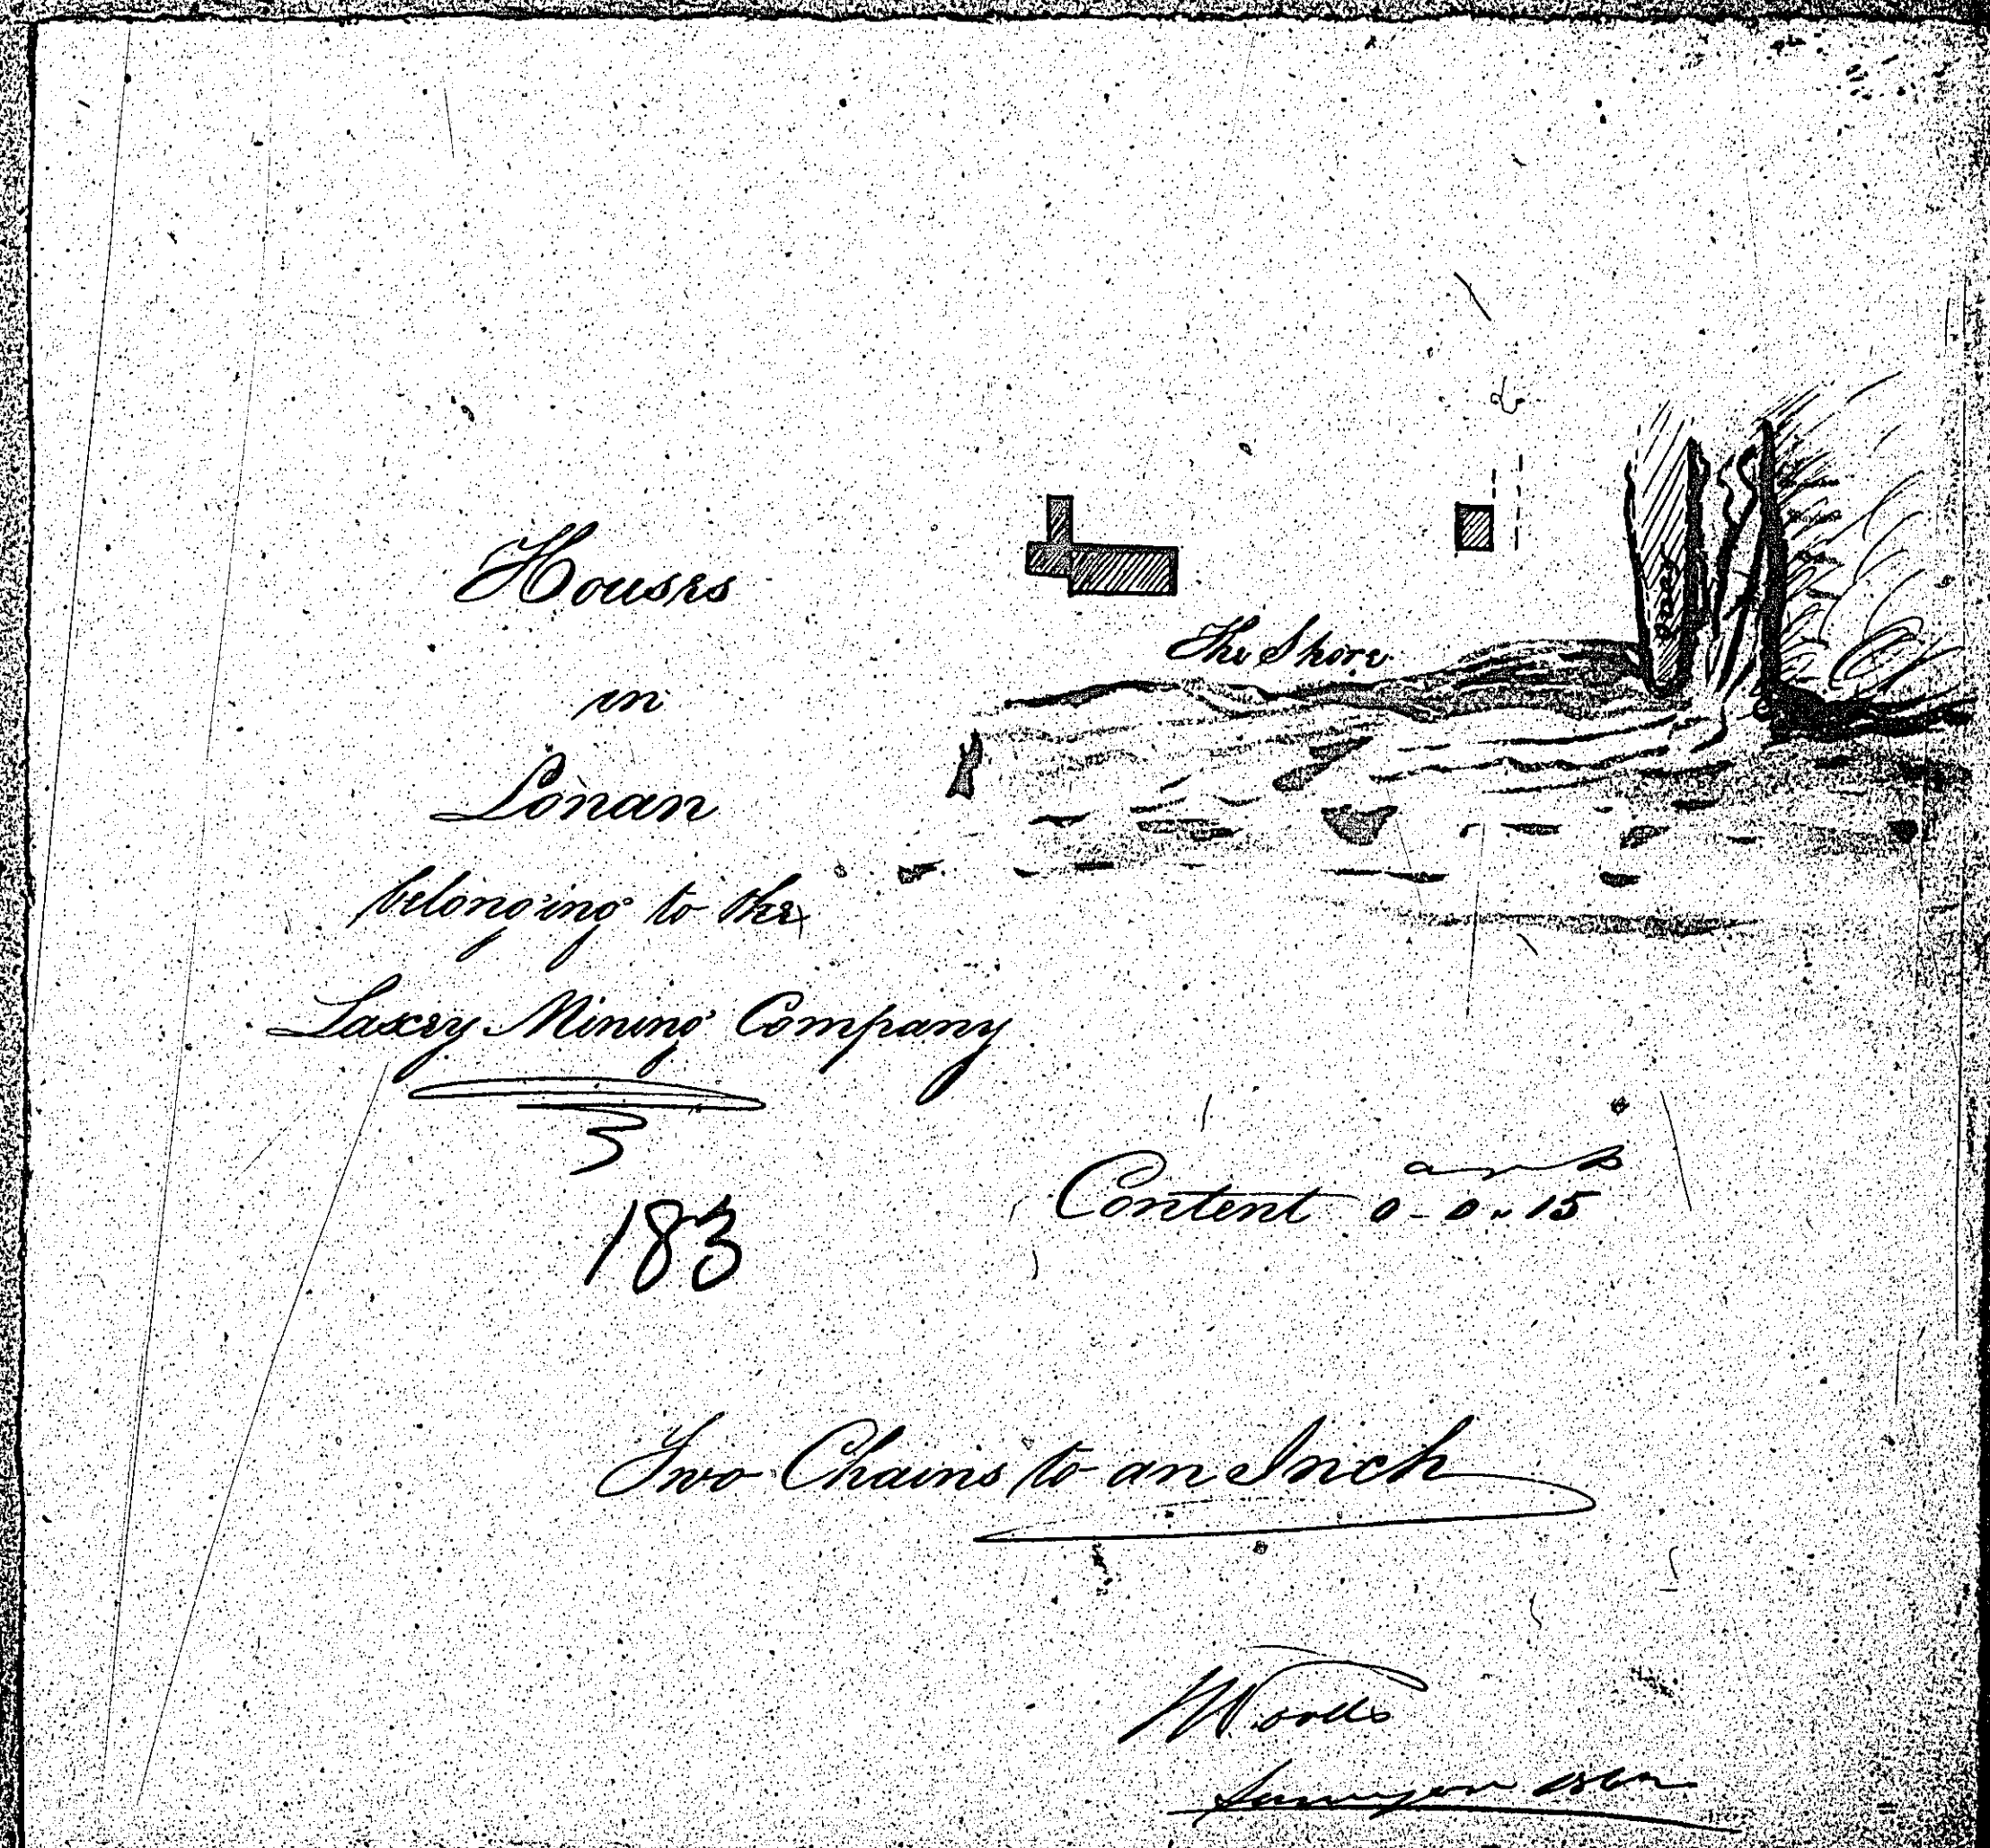 Houses
in
Lonan
belonging to the
Laxey Mining Company
183
The Shore
Content a r p
0 - 0 " 15
Two Chains to an Inch
Woods
Surveyor